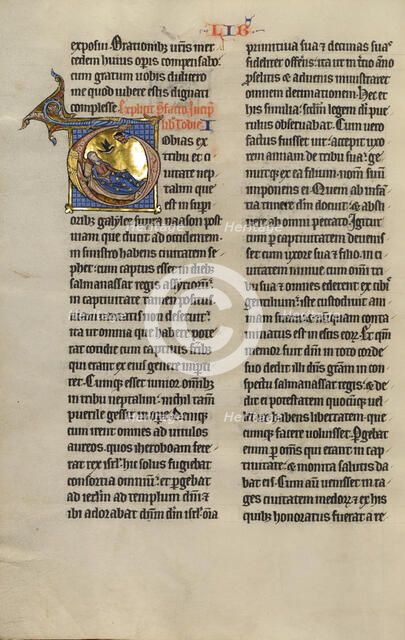 LIB
exposui. Orationibus vris mer
cedem huius opis compensabo.
cum gratum vobis didicero
me quod iubere estis dignati
complesse. Explicit pfatio. Incip
lib. Tobie. I
Tobias ex
tribu et ci
uitate nep
talim que
est in supi
oribus galylee supra naason post
uiam que ducit ad occidentem
in sinistro habens ciuitatem se
phet. cum captus esset in dieb
salmanassar regis assyriorum.
in captiuitate tamen positus
uiam ueritatis non deseruit.
ita ut omnia que habere pote
rat cotidie cum captiuis frib
qui erant ex eius genere impti
ret. Cumque esset iunior omnib
in tribu neptalim. nichil tamen
puerile gessit in opere. Denique
cum irent omnes ad uitulos
aureos. quos iheroboam fece
rat rex isrl. hic solus fugiebat
consortia omnium. et pergebat
ad ierlm ad templum dni. et
ibi adorabat dnm dm isrl. oia
primitiua sua et decimas suas
fideliter offerens. ita ut in tcio anno
pselitis et aduenis ministraret
omnem decimationem. Hec et
his similia. scdm legem di pu
erulus obseruabat. Cum uero
factus fuisset uir. accepit uxo
rem annam de tribu sua. ge
nuitque ex ea filium. nomen suum
imponens ei. Quem ab infan
tia timere dm docuit. et absti
nere ab omni peccato. Igitur
cum p captiuitatem deuenis
set cum uxore sua et filio. in ci
uitatem niniue cum omni tri
bu sua. et omnes ederent ex cibis
gentilium. iste custodiuit ani
mam suam. et numquam conta
minatus est in escis eorum. Et qm
memor fuit dni in toto corde
suo. dedit illi ds gram in con
spectu salmanassar regis. et de
dit ei potestatem quocumque uel
let ire. habens libertatem. que
cumque facere uoluisset. Pergebat
ergo p omnes qui erant in cap
tiuitate. et monita salutis da
bat eis. Cum autem uenisset in ra
ges ciuitatem medorum. et ex his
quibus honoratus fuerat a re
Heritage
Heritage
Heritage
Heritage